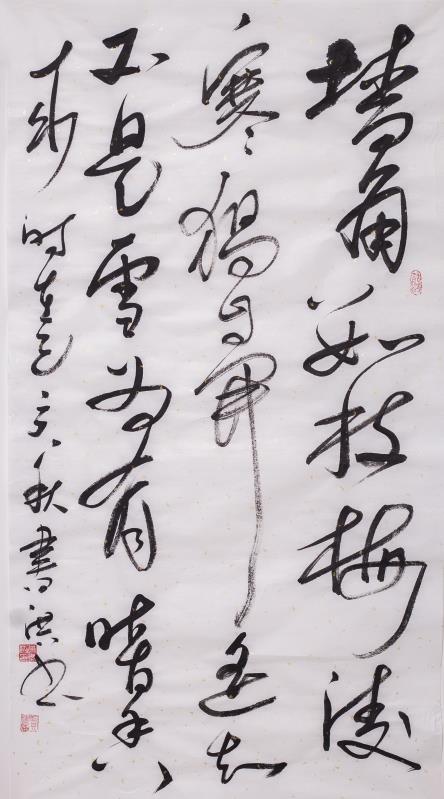 墙角数枝梅凌
寒獨自開遥知
不是雪为有暗香
来 时在己亥秋書洪书